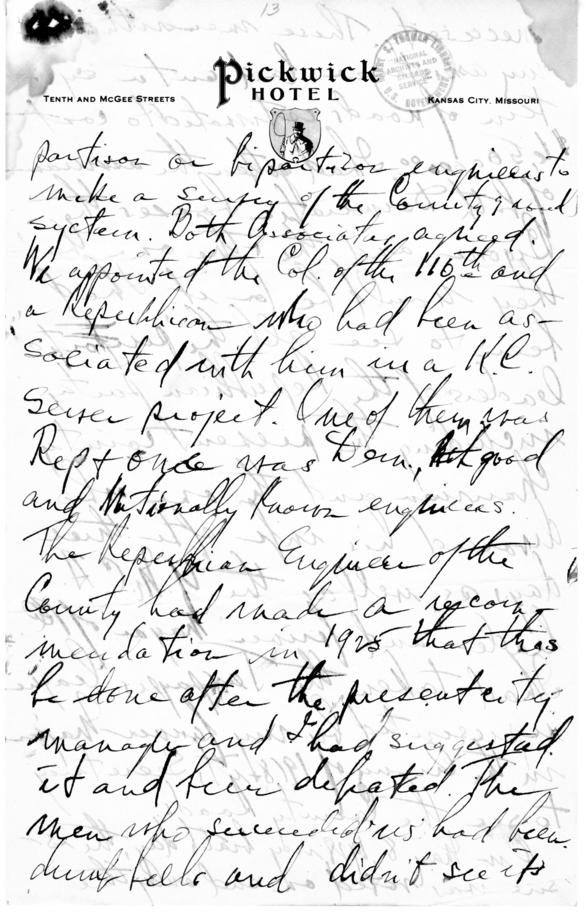 13
Pickwick
HOTEL
TENTH AND MCGEE STREETS
KANSAS CITY, MISSOURI
NATIONAL ARCHIVES AND RECORDS SERVICE
partison or bipartison engineers to
make a survey of the County road
system. Both Associates agreed.
We appointed the Col. of the 110th and
a Republican who had been as-
sociated with him in a K.C.
Sewer project. One of them was
Rep + one was Dem., both good
and Nationally Known engineers.
The Republican Engineer of the
County had made a recom-
mendation in 1925 that this
be done after the present city
manager and I had suggested
it and been defeated. The
men who succeeded us had been
dumb bells and didn't see its